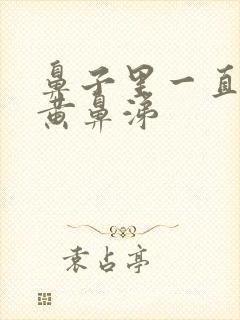 鼻子里一直
黄鼻涕
袁占亭